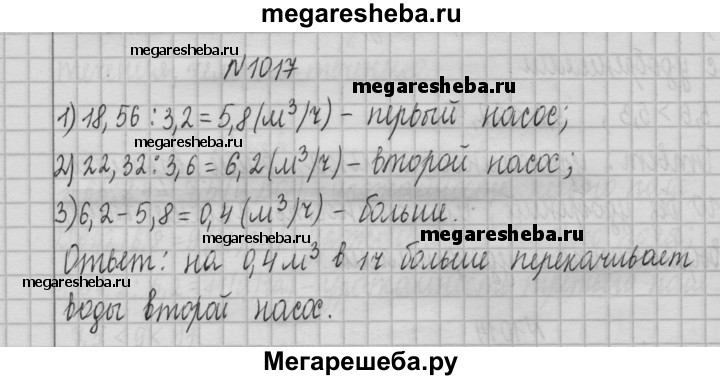 megaresheba.ru
megaresheba.ru
№1017
megaresheba.ru
1) 18,56 : 3,2 = 5,8 (м³/ч) – первый насос;
megaresheba.ru
2) 22,32 : 3,6 = 6,2 (м³/ч) – второй насос;
3) 6,2 – 5,8 = 0,4 (м³/ч) – больше.
megaresheba.ru
megaresheba.ru
Ответ: на 0,4 м³ в 1ч больше перекачивает
megaresheba.ru
воды второй насос.
Мегарешеба.ру